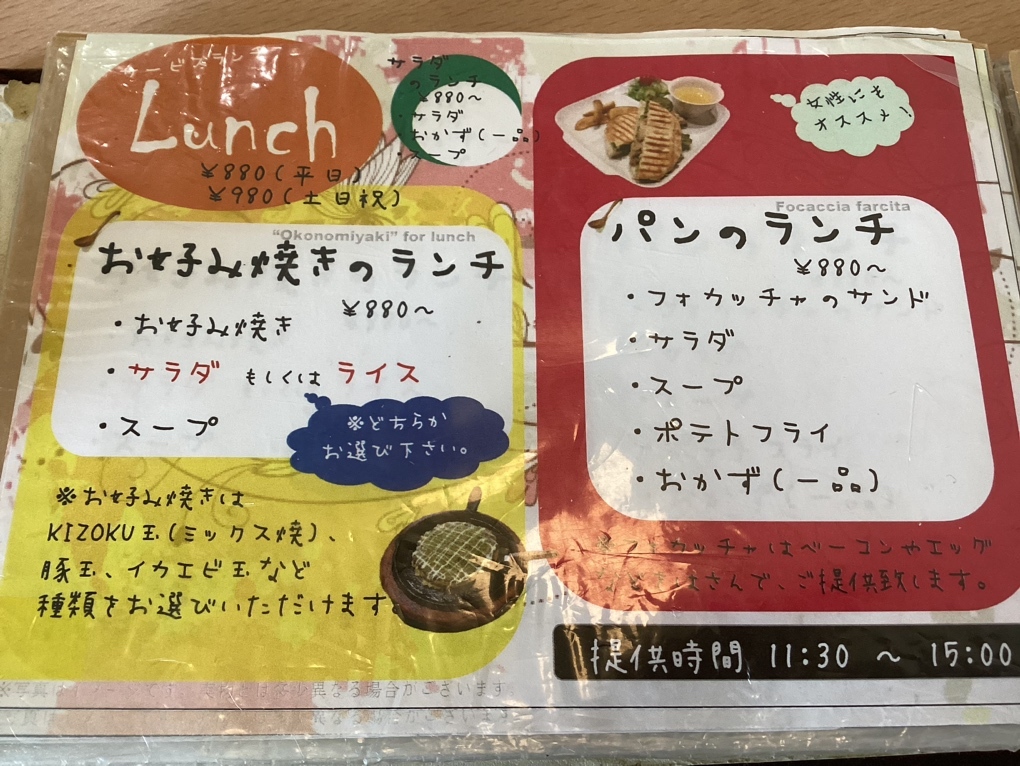 Lunch
¥880(平日)
¥980(土日祝)
サラダ
のランチ
¥880〜
・サラダ
・おかず(一品)
・スープ
"Okonomiyaki" for lunch
お好み焼きのランチ
¥880〜
・お好み焼き
・サラダ もしくは ライス
・スープ
※どちらか
お選び下さい。
※お好み焼きは
KIZOKU玉(ミックス焼)、
豚玉、イカエビ玉など
種類をお選びいただけます。
女性にも
オススメ!
Focaccia farcita
パンのランチ
¥880〜
・フォカッチャのサンド
・サラダ
・スープ
・ポテトフライ
・おかず(一品)
カッチャはベーコンやエッグ
はさんで、ご提供致します。
提供時間 11:30 〜 15:00
異なる場合がございます